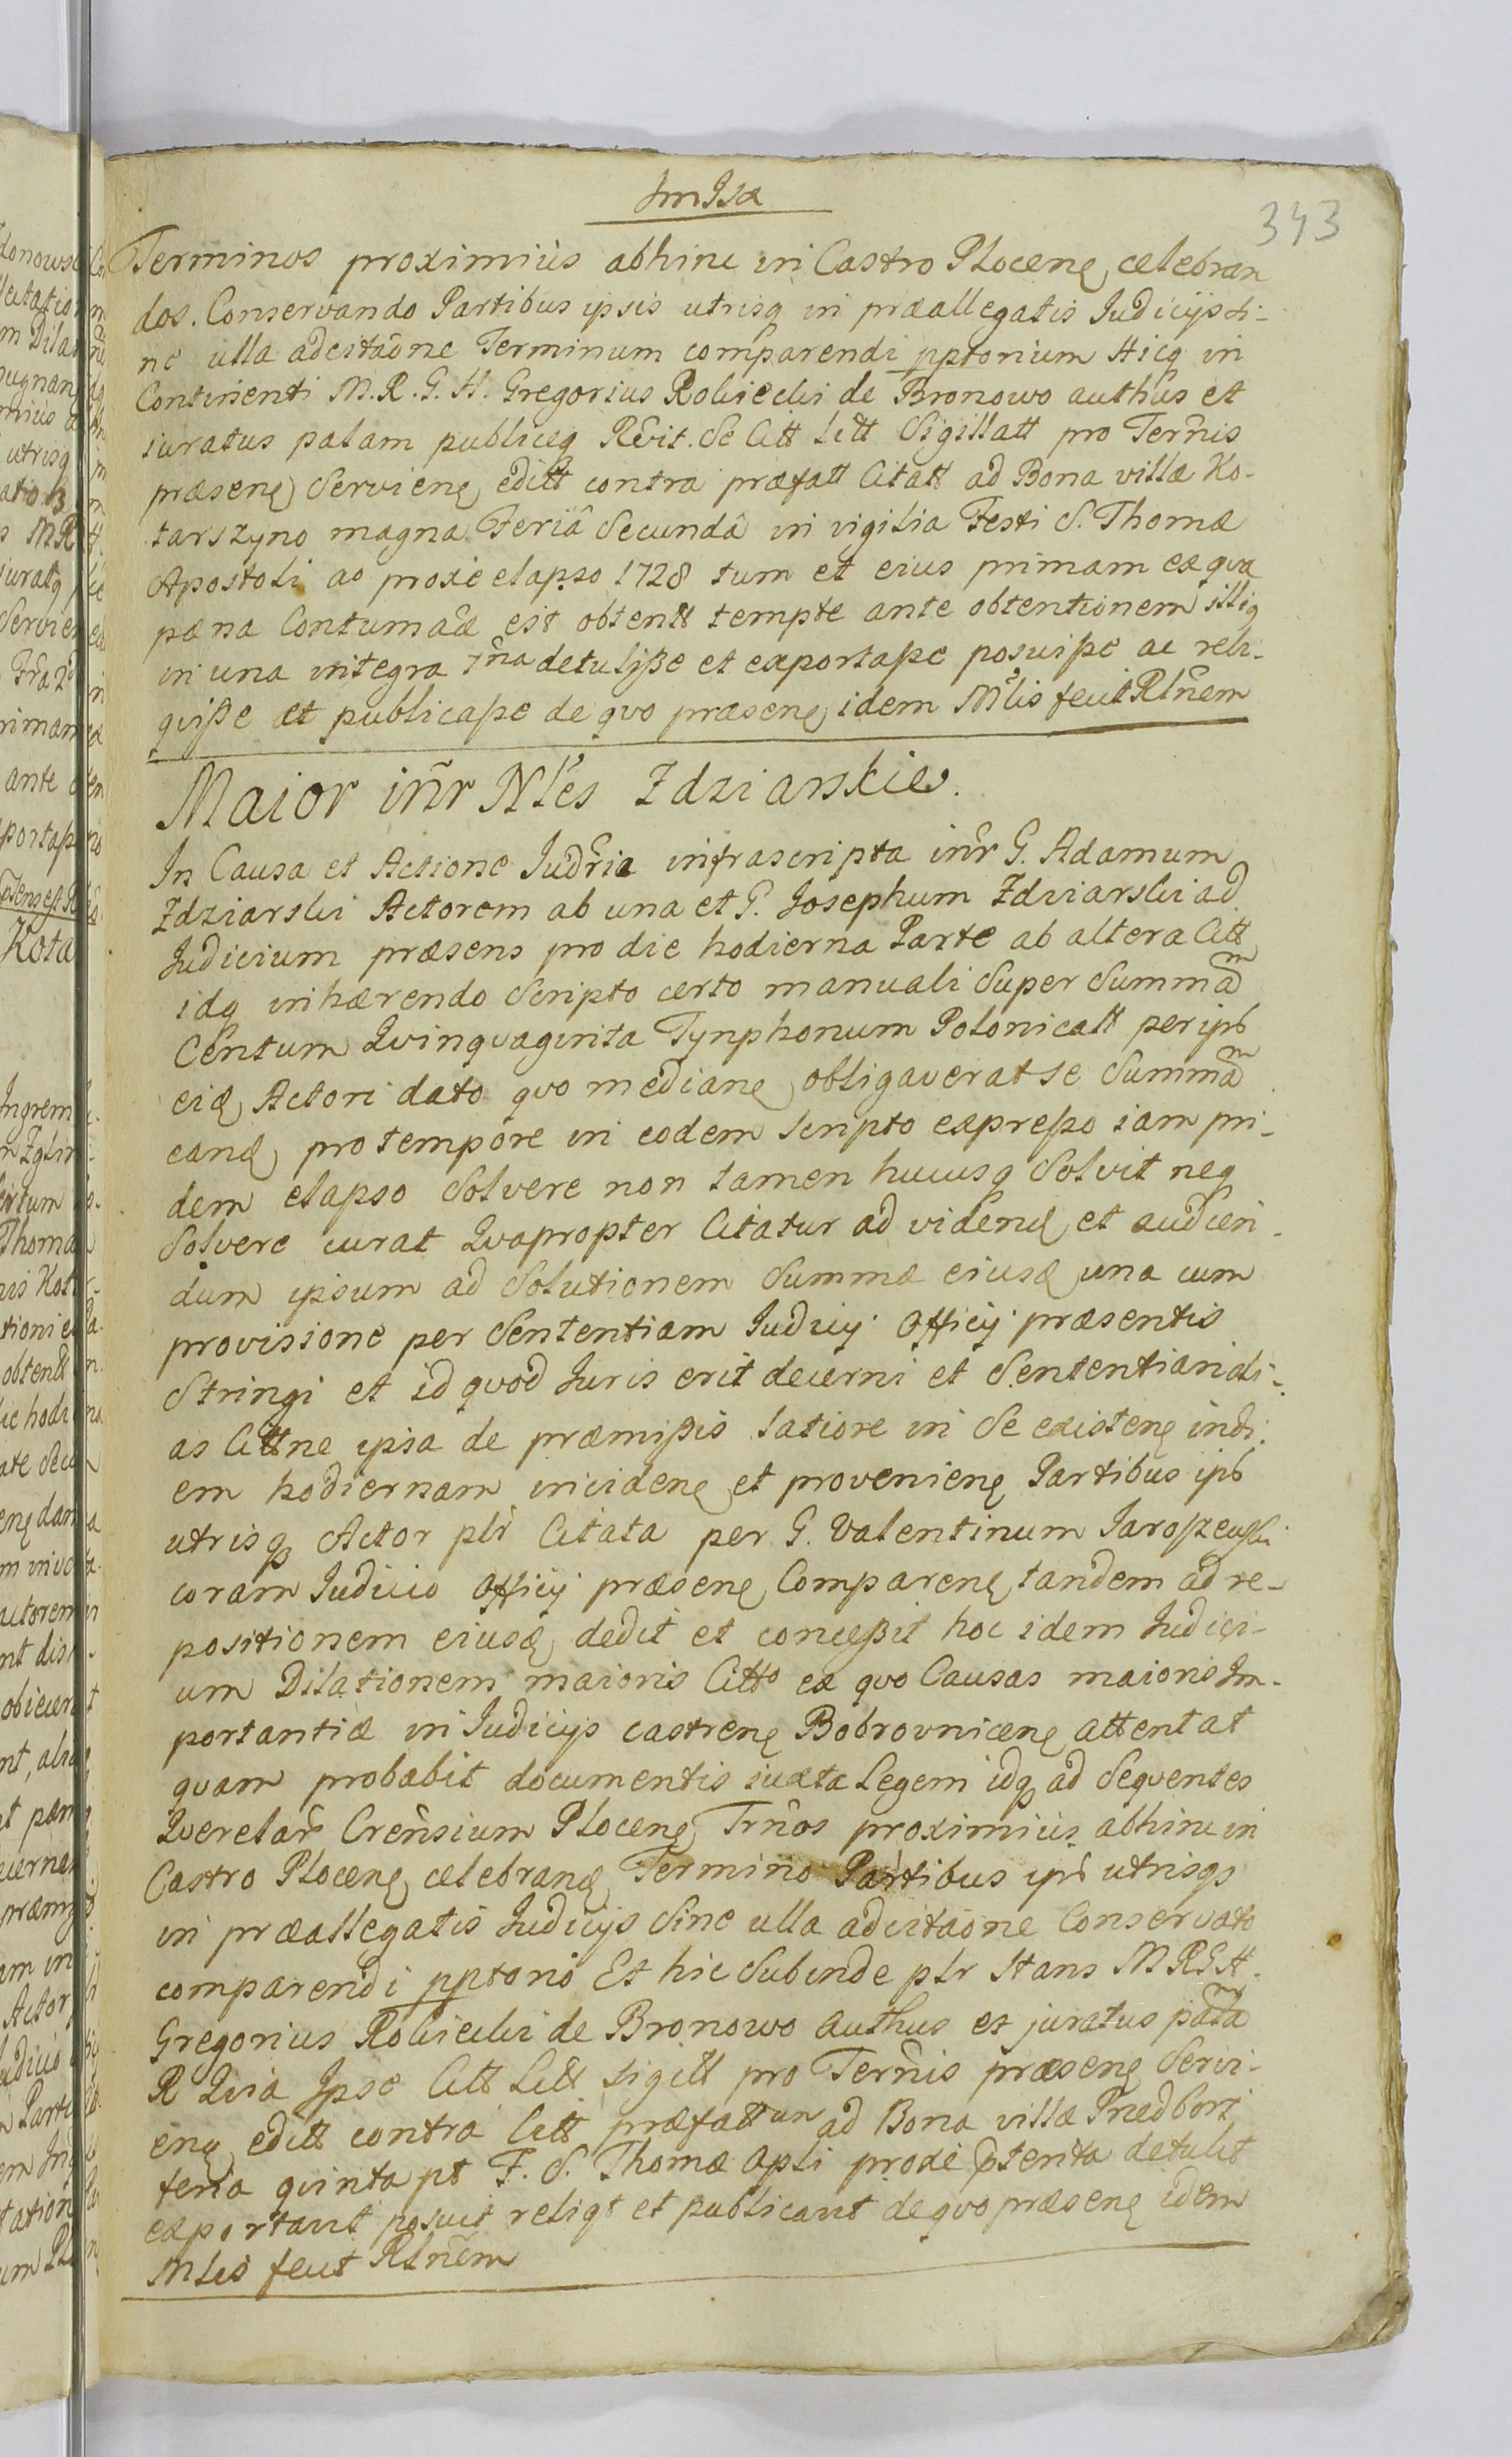 343
Terminos proximius abhinc in Castro Plocenẽ celebran
dos. Conservando Partibus ipsis utrisq in præallegatis Judicijs si-
ne ulla adcitãone Terminum comparendi pptorium Hicq in
Continenti M. R. G. H. Gregorius Rokicki de Bronowo authus et
iuratus palam publiceq Rcvit. Se Citt Litt Sigillatt pro Ternis
præsenẽ Servienẽ editt contra præfatt Citatt ad Bona villæ Ko-
tarszyno magna Feriâ Secundâ in vigilia Festi S. Thomæ
Apostoli ao proxe elapso 1728 tum et eius primam ex qva
pæna Contumaciæ est obtentt tempte ante obtentionem illiq
in una integra 7na detulisse et exportasse posuisse ac reli-
qvisse et publicasse de qvo præsenẽ idem Mlis fecit Rlñem
Maior iñr Nles Zdziarskie.
In Causa et Actione Judria infrascripta inr G. Adamum
Zdziarski Actorem ab una et G. Josephum Zdziarski ad
Judicium præsens pro die hodierna Parte ab altera Citt
idq inhærendo Scripto certo manuali Super Summam
Centum Qvinqvaginta Tynphonum Polonicatt per ips
eid Actori dato qvo medianẽ obligaverat se Summam
eand pro tempore in eodem Scripto expresso iam pri-
dem elapso Solvere non tamen hucusq Solvit neq
Solvere curat Qvapropter Citatur ad videnđ et audien-
dum ipsum ad Solutionem Summæ eiusđ una cum
provisione per Sententiam Judicij Officij præsentis
Stringi et id qvod Juris erit decerni et Sententiari ali-
as Cittne ipsa de præmissis latiore in Se existenẽ in di-
em hodiernam incidenẽ et provenienẽ Partibus ips
utrisq Actor plr Citata per G. Valentinum Jaroszewski
coram Judicio Officij præsenẽ Comparenẽ tandem ad re-
positionem eiusđ dedit et concessit hoc idem Judici-
um Dilationem maioris Citto ex qvo Causas maioris Im-
portantiæ in Judicijs castrenẽ Bobrovnicenẽ attentat
qvam probabit documentis iuxta Legem idq ad Seqventes
Qverelar Creñsium Plocenẽ Trños proximius abhinc in
Castro Plocenẽ celebranđ Termino Partibus ips utrisqs
in præallegatis Judicijs Sine ulla adcitãone Conservato
comparendi pptorio Et hic Subinde plr Stans M R G H.
Gregorius Rokicki de Bronowo authus et juratus palam
R Qvia Ipse Citt Litt Sigitt pro Ternis præsenẽ Servi-
enẽ editt contra Citt præfattum ad Bona villæ Priedborz
feria qvinta pt F. S. Thomæ Apli proxe ptenta detulit
exportavit posuit reliqt et publicavit de qvo præsenẽ idem
Mlis fecit Rlñem